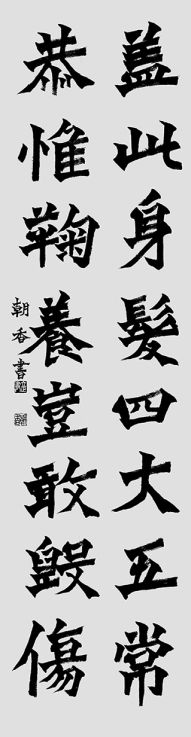 盖此身髮四大五常
恭惟鞠養豈敢毀傷
朝香書